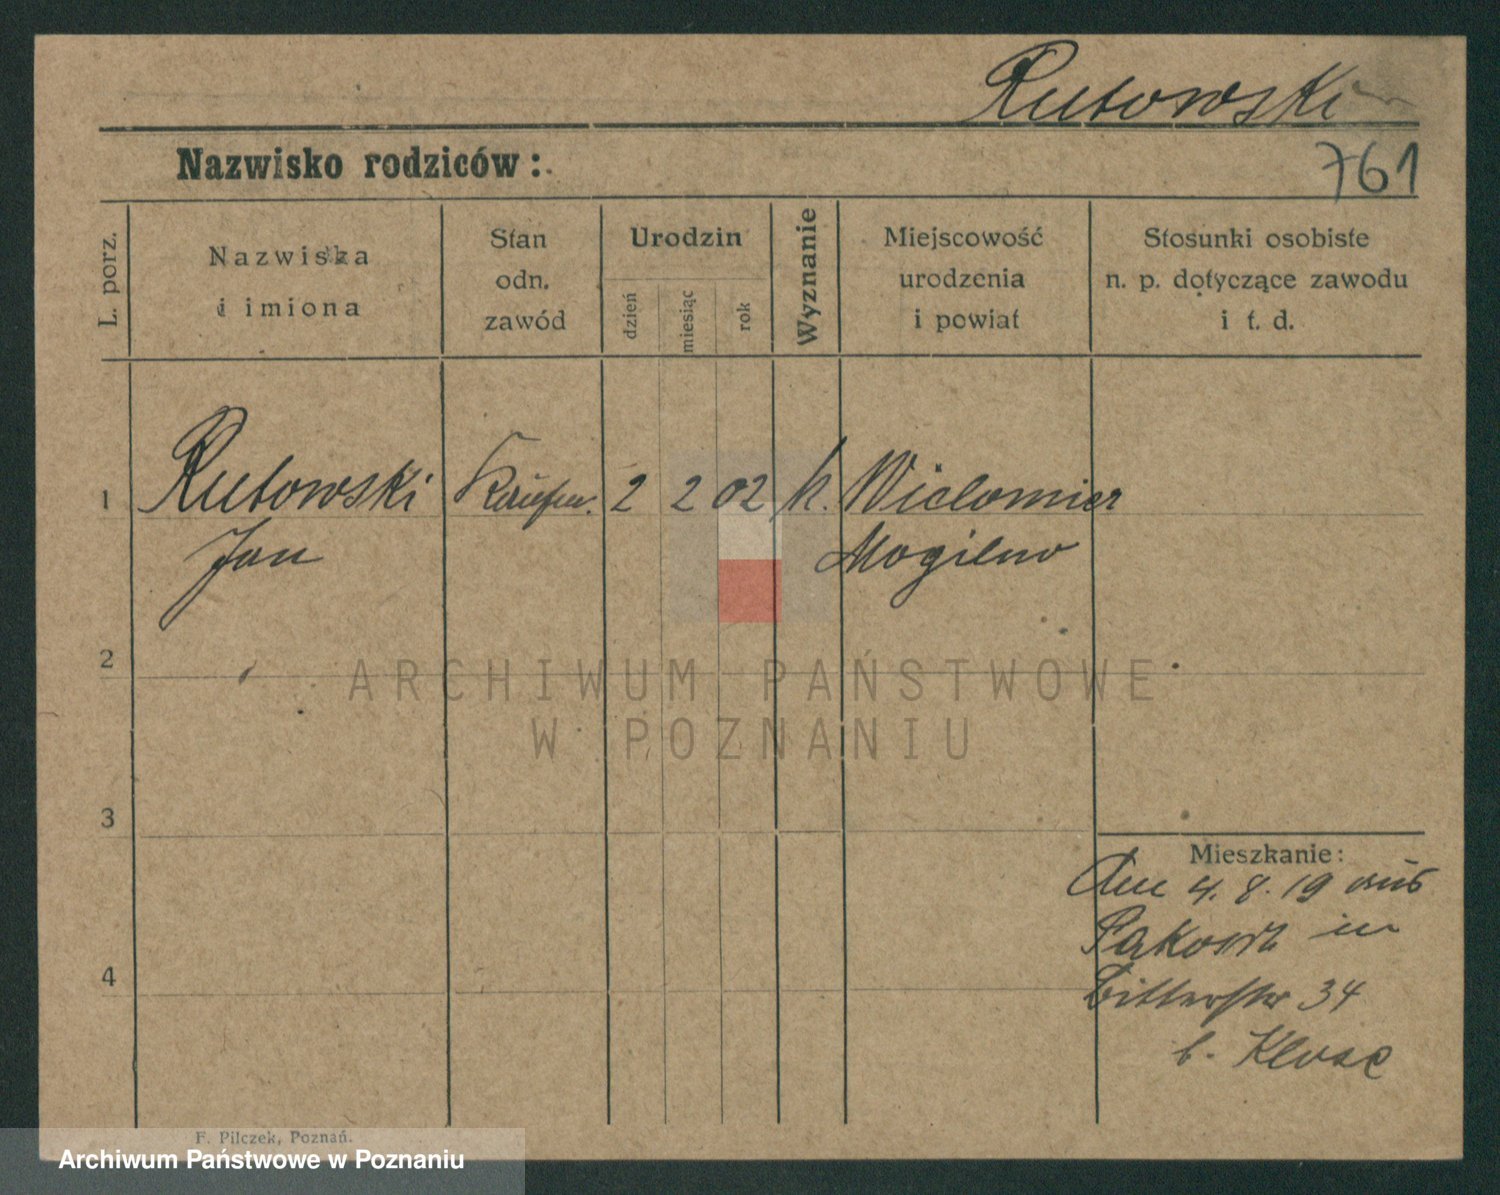 Rutowski
Nazwisko rodziców:
761
L. porz.
Nazwiska
i imiona
Stan
odn.
zawód
Urodzin
dzień
miesiąc
rok
Wyznanie
Miejscowość
urodzenia
i powiat
Stosunki osobiste
n. p. dotyczące zawodu
i t. d.
1 Rutowski Kaufm. 2 2 02 k. Wielomier
Jan Mogilno
2
ARCHIWUM PAŃSTWOWE
W POZNANIU
3
Mieszkanie:
4. 8. 19 aus
Pakosch in
4
Bitterstr 34
b. Klose
F. Pilczek, Poznań.
Archiwum Państwowe w Poznaniu